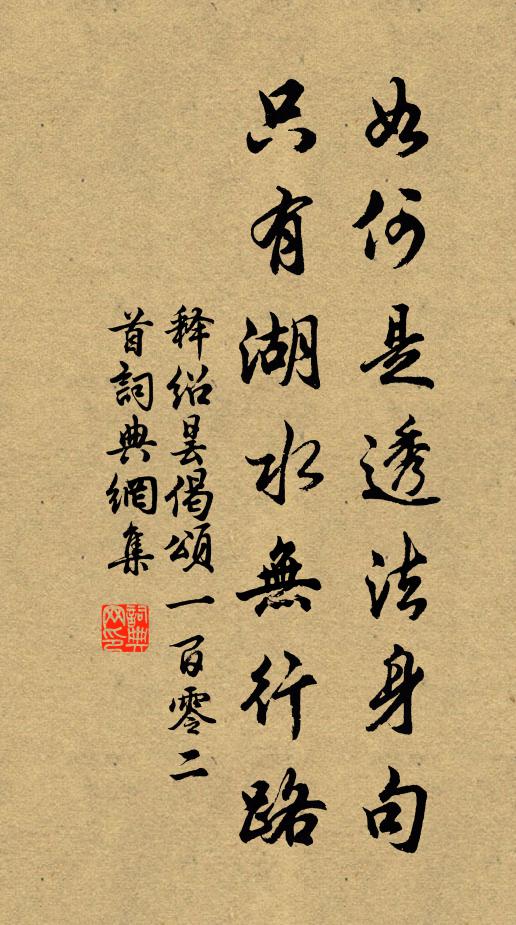 如何是透法身句
只有湖水無行路
释紹曇偈頌一百零二
首詞典網集
詞典网印